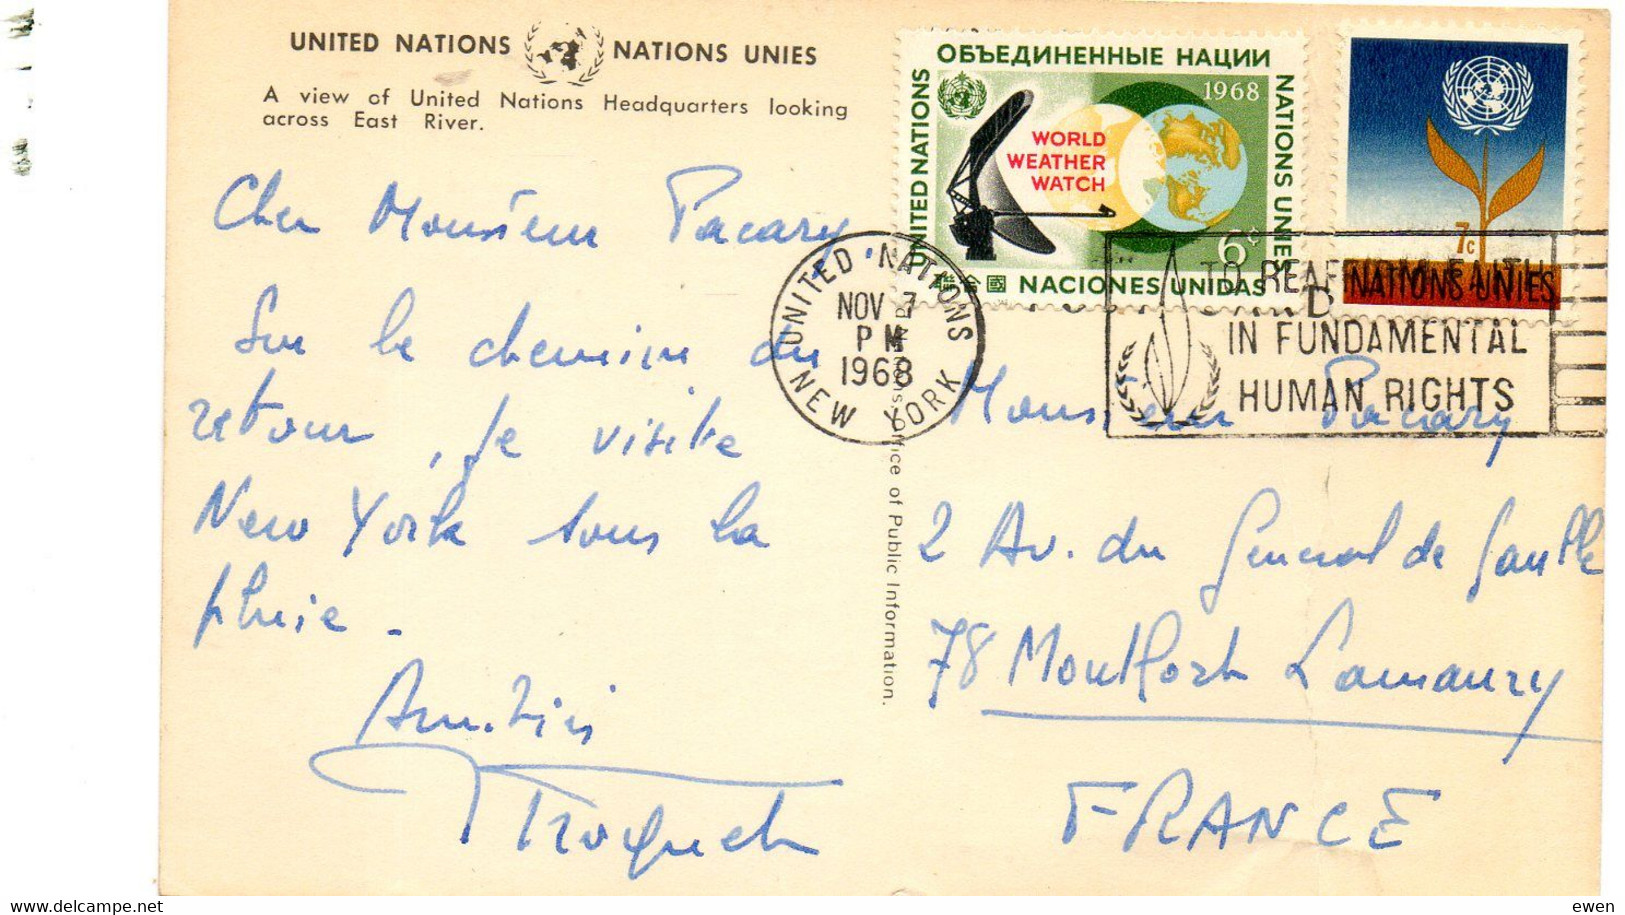 UNITED NATIONS NATIONS UNIES
A view of United Nations Headquarters looking
across East River.
Cher Monsieur Pacary,
Sur le chemin du
retour, je visite
New York sous la
pluie.
Amitiés
Troquet
ОБЪЕДИНЕННЫЕ НАЦИИ
UNITED NATIONS
1968
WORLD
WEATHER
WATCH
NATIONS UNIES
6¢
聯合國 NACIONES UNIDAS
7c
NATIONS UNIES
UNITED NATIONS
NOV 7
PM
1968
NEW YORK
TO REAFFIRM FAITH
IN FUNDAMENTAL
HUMAN RIGHTS
Office of Public Information.
Monsieur Pacary
2 Av. du General de Gaulle
78 Montfort Lamaury
FRANCE
delcampe.net
ewen